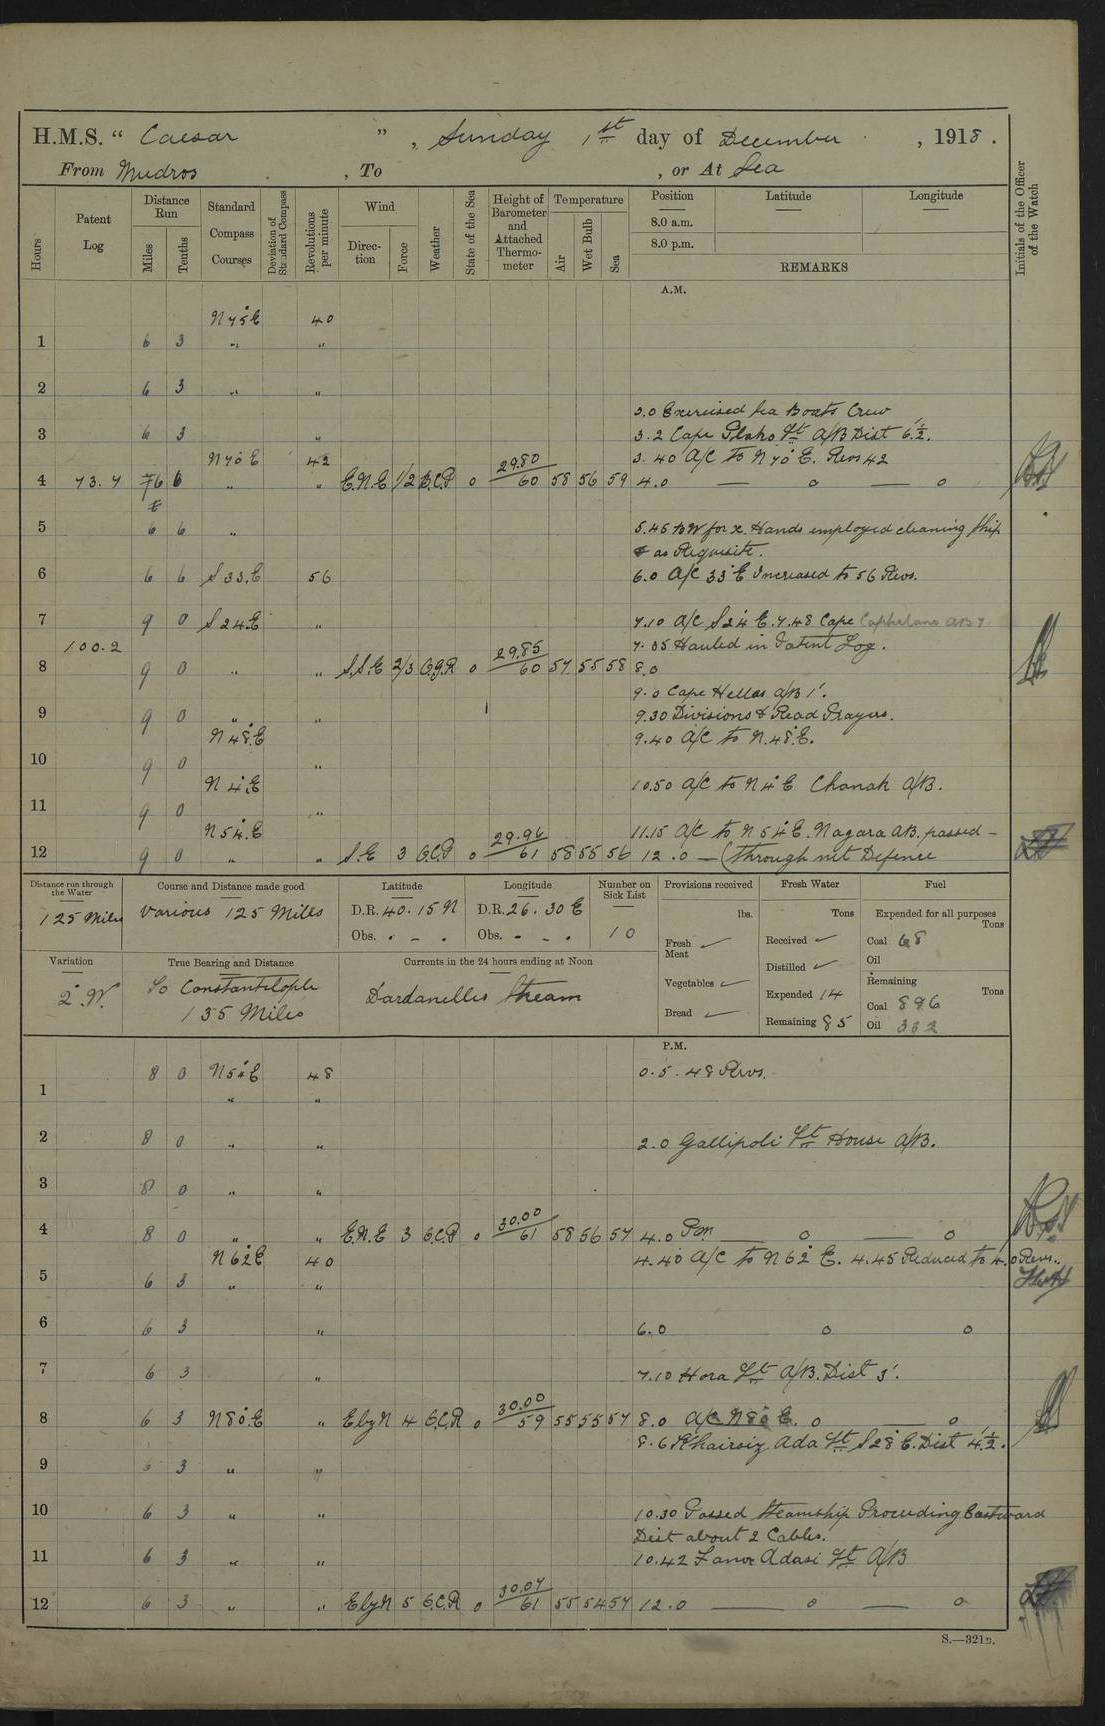 H.M.S. “ Caesar ” , Sunday 1st day of December , 1918 .
From Mudros , To , or At Sea
Hours Patent Log Distance Run Miles Tenths Standard Compass Courses Deviation of Standard Compass Revolutions per minute Wind Direction Force Weather State of the Sea Height of Barometer and Attached Thermometer Temperature Air Wet Bulb Sea Position Latitude Longitude Initials of the Officer of the Watch
8.0 a.m.
8.0 p.m.
REMARKS
A.M.
N 75° E 40
1 6 3 " "
2 6 3 " "
3.0 Exercised Sea Boats Crew
3 6 3 " 3.2 Cape Plako Lt A/B Dist 6½'.
N 70° E 42 29.80 3.40 A/C to N 70° E. Revs 42
4 73.7 6 6 " " E.N.E 1/2 B.C.P 0 60 58 56 59 4.0 — 0 — 0
5 6 6 " 5.45 Hands employed cleaning ship
& as Requisite.
6 6 6 S 33 E 56 6.0 A/C 33° E Increased to 56 Revs.
7 9 0 S 24 E " 7.10 A/C S 24° E. 7.48 Cape
100.2 29.85 7.55 Hauled in Patent Log.
8 9 0 " " S.S.E 2/3 O.G.R 0 60 57 55 58 8.0
9.0 Cape Hellas A/B 1'.
9 9 0 " " 9.30 Divisions & Read Prayers.
N 48° E 9.40 A/C to N. 48° E.
10 9 0 "
N 4° E 10.50 A/C to N 4° E Chanak A/B.
11 9 0 "
N 54° E 29.96 11.15 A/C to N 54° E. Nagara AB. passed -
12 9 0 " " S.E 3 O.C.P 0 61 58 55 56 12.0 — (through net Defence
Distance run through the Water Course and Distance made good Latitude Longitude Number on Sick List Provisions received Fresh Water Fuel
125 Miles Various 125 Miles D.R. 40.15 N D.R. 26.30 E lbs. Tons Expended for all purposes Tons
Obs. . - . Obs. - . . 10 Fresh Meat ✓ Received ✓ Coal 68
Oil
Variation True Bearing and Distance Currents in the 24 hours ending at Noon Distilled ✓ Remaining
2° W. To Constantinople Dardanelles Stream Vegetables ✓ Expended 14 Coal 896 Tons
135 Miles Bread ✓ Remaining 85 Oil 332
P.M.
8 0 N 54° E 48 0.5. 48 Revs.
1 " "
2 8 0 " " 2.0 Gallipoli Lt House A/B.
3 8 0 " "
30.00
4 8 0 " " E.N.E 3 O.C.P 0 61 58 56 57 4.0 Pm — 0 — 0
N 62° E 40 4.40 A/C to N 62° E. 4.45 Reduced to 40 Revs.
5 6 3 " "
6 6 3 " 6.0 0 0
7 6 3 " 7.10 Hora Lt A/B. Dist 3'.
30.00
8 6 3 N 80° E " E by N 4 O.C.R 0 59 55 55 57 8.0 A/C N 80° E. 0 — 0
8.6 Ada Lt S 28° E. Dist 4½'.
9 6 3 " "
10 6 3 " " 10.30 Passed Steamship Proceeding Eastward
Dist about 2 Cables.
11 6 3 " " 10.42 Adasi Lt A/B
30.07
12 6 3 " " E by N 5 O.C.R 0 61 55 54 57 12.0 — 0 — 0
S.—321B.